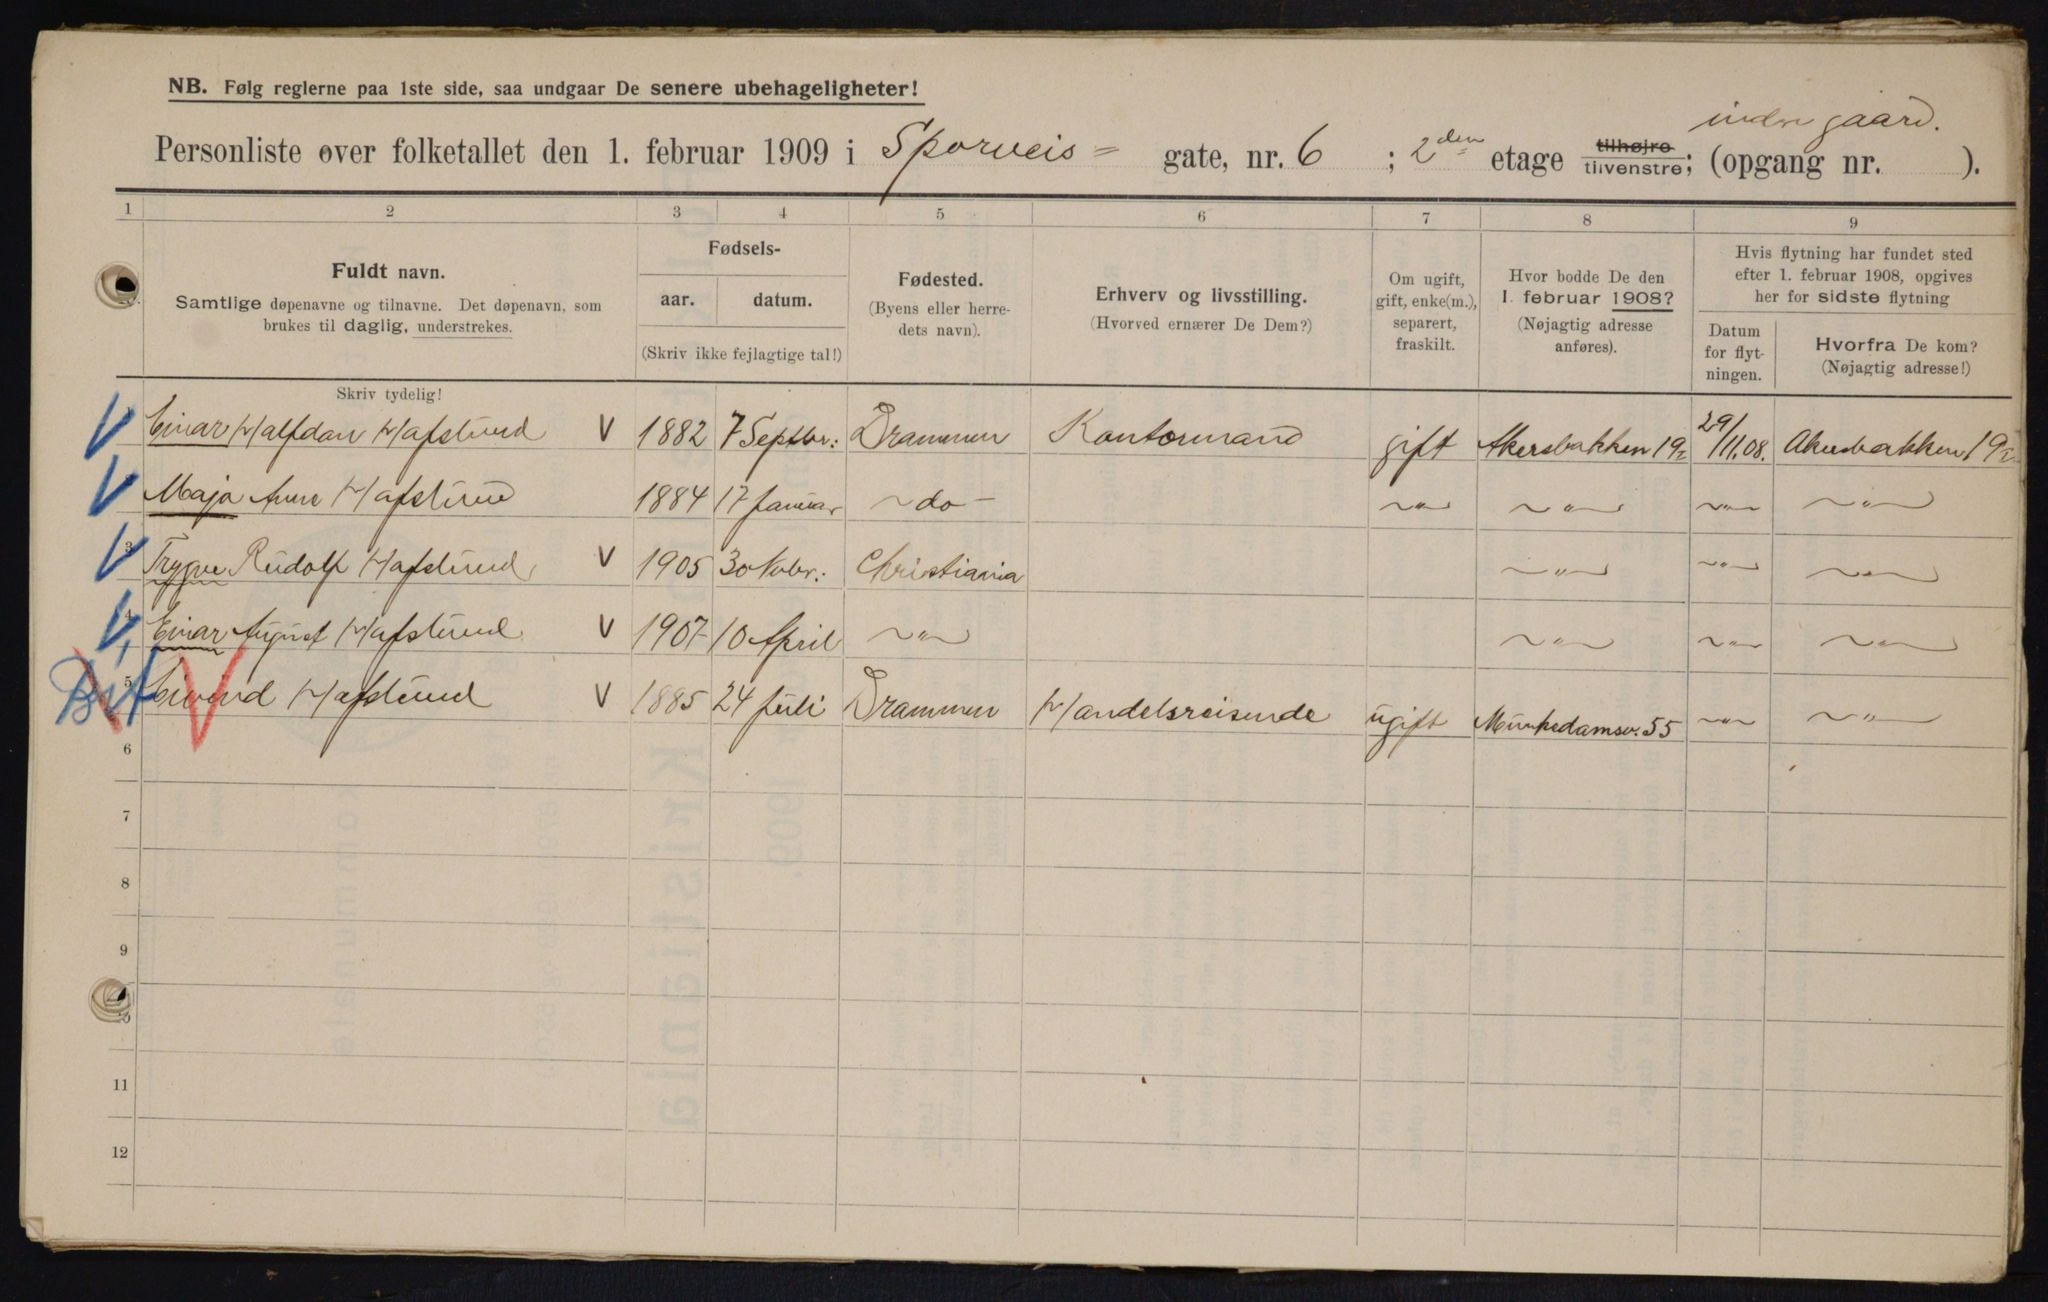 NB. Følg reglerne paa 1ste side, saa undgaar De senere ubehageligheter!
indre gaard.
Personliste over folketallet den 1. februar 1909 i Sporveis= gate, nr. 6 ; 2den etage tilhøjre tilvenstre; (opgang nr. ).
1 2 3 4 5 6 7 8 9
Fuldt navn.
Samtlige døpenavne og tilnavne. Det døpenavn, som
brukes til daglig, understrekes.
Skriv tydelig!
Fødsels-
aar. datum.
(Skriv ikke fejlagtige tal!)
Fødested.
(Byens eller herre-
dets navn).
Erhverv og livsstilling.
(Hvorved ernærer De Dem?)
Om ugift,
gift, enke(m.),
separert,
fraskilt.
Hvor bodde De den
1. februar 1908?
(Nøjagtig adresse
anføres).
Hvis flytning har fundet sted
efter 1. februar 1908, opgives
her for sidste flytning
Datum
for flyt-
ningen.
Hvorfra De kom?
(Nøjagtig adresse!)
V Einar Halfdan Hafslund V 1882 7 Septbr: Drammen Kontormand gift Akersbakken 19 29/11.08. Akersbakken 19
V Maja Hafslund 1884 17 Januar ~do~ ~"~ ~"~ ~"~ ~"~
V 3 Trygve Rudolf Hafslund V 1905 30 Nvbr: Christiania ~"~ ~"~ ~"~
V 4 Einar August Hafslund V 1907 10 April ~"~ ~"~ ~"~ ~"~
5 V Hafslund V 1885 24 Juli Drammen Handelsreisende ugift Munkedamsv. 55 ~"~ ~"~
6
7
8
9
10
11
12